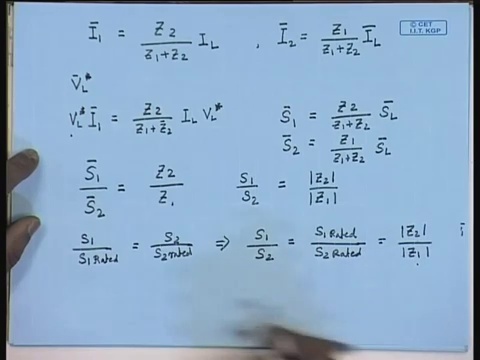 Ī₁ = Z₂/(Z₁+Z₂) I_L , Ī₂ = Z₁/(Z₁+Z₂) Ī_L
© CET
I.I.T. KGP
V̄_L*
V_L* Ī₁ = Z₂/(Z₁+Z₂) I_L V_L*
S̄₁ = Z₂/(Z₁+Z₂) S̄_L
S̄₂ = Z₁/(Z₁+Z₂) S̄_L
S̄₁/S̄₂ = Z₂/Z₁
S₁/S₂ = |Z₂|/|Z₁|
S₁/S₁ Rated = S₂/S₂ rated ⇒ S₁/S₂ = S₁ Rated/S₂ Rated = |Z₂|/|Z₁|